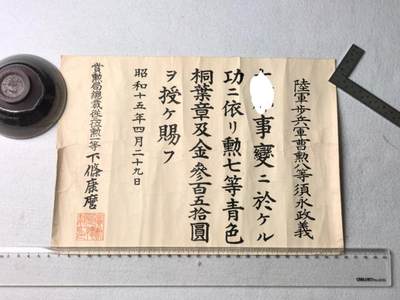 陸軍歩兵軍曹勲八等須永政義
事變ニ於ケル
功ニ依リ勲七等青色
桐葉章及金參百五拾圓
ヲ授ケ賜フ
昭和十五年四月二十九日
賞勲局總裁從四勲二等下條康麿